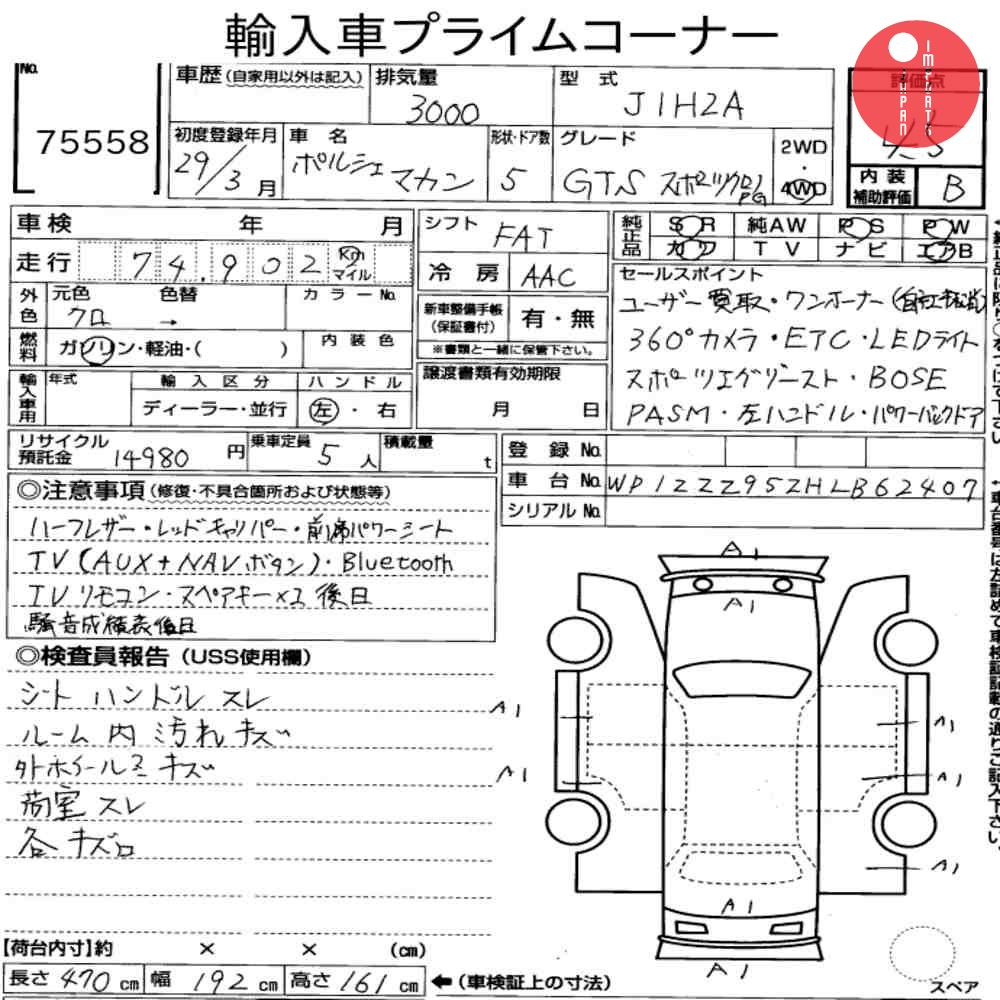 輸入車プライムコーナー
IMPORTS JAPAN
No.
75558
車歴(自家用以外は記入)
排気量
3000
型 式
J1H2A
評価点
初度登録年月
29/3月
車 名
ポルシェ マカン
形状・ドア数
5
グレード
GTS スポーツクロノPG
2WD
・
4WD
内装
補助評価
B
車検 年 月
走行 74,902 Km マイル
シフト
FAT
冷 房
AAC
純正品
SR 純AW PS PW
カワ TV ナビ エアB
外色
元色 色替
クロ →
カラーNo.
新車整備手帳
(保証書付)
有・無
※書類と一緒に保管下さい。
セールスポイント
ユーザー買取・ワンオーナー
360°カメラ・ETC・LEDライト
スポーツエグゾースト・BOSE
PASM・左ハンドル・パワーバックドア
燃料
ガソリン・軽油・( )
内装色
輸入車用
年式
輸入区分
ディーラー・並行
ハンドル
左・右
譲渡書類有効期限
月 日
リサイクル
預託金 14980 円
乗車定員
5人
積載量
t
登録No.
車台No. WP1ZZZ95ZHLB62407
シリアルNo.
◎注意事項(修復・不具合箇所および状態等)
ハーフレザー・レッドキャリパー・前席パワーシート
TV(AUX+NAVボタン)・Bluetooth
TVリモコン・スペアキー×1 後日
騒音成績表後日
◎検査員報告(USS使用欄)
シート ハンドル スレ
ルーム内 汚れ キズ
外ホイール2 キズ
荷室 スレ
各 キズ
A1
A1
A1
A1
A1
A1
A1
A1
A1
【荷台内寸】約 × × (cm)
長さ 470 cm 幅 192 cm 高さ 161 cm
←(車検証上の寸法)
スペア
←車台番号は左詰めで車検証記載の通りご記入下さい。